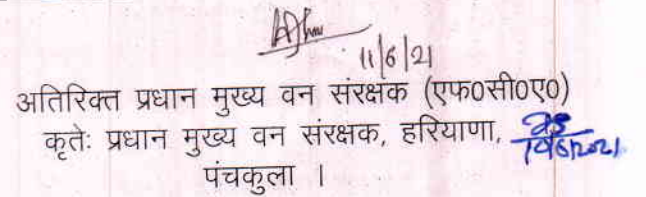 11/6/21
अतिरिक्त प्रधान मुख्य वन संरक्षक (एफ0सी0ए0)
कृतेः प्रधान मुख्य वन संरक्षक, हरियाणा,
पंचकुला ।